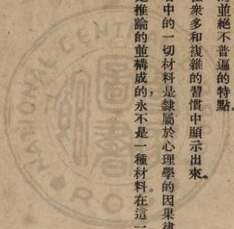 並絕不普遍的特點。
衆多和複雜的習慣中顯示出來。
中的一切材料是隸屬於心理學的因果律
推論的並構成的,永不是一種材料在這一
NATIONAL CENTRAL
圖書